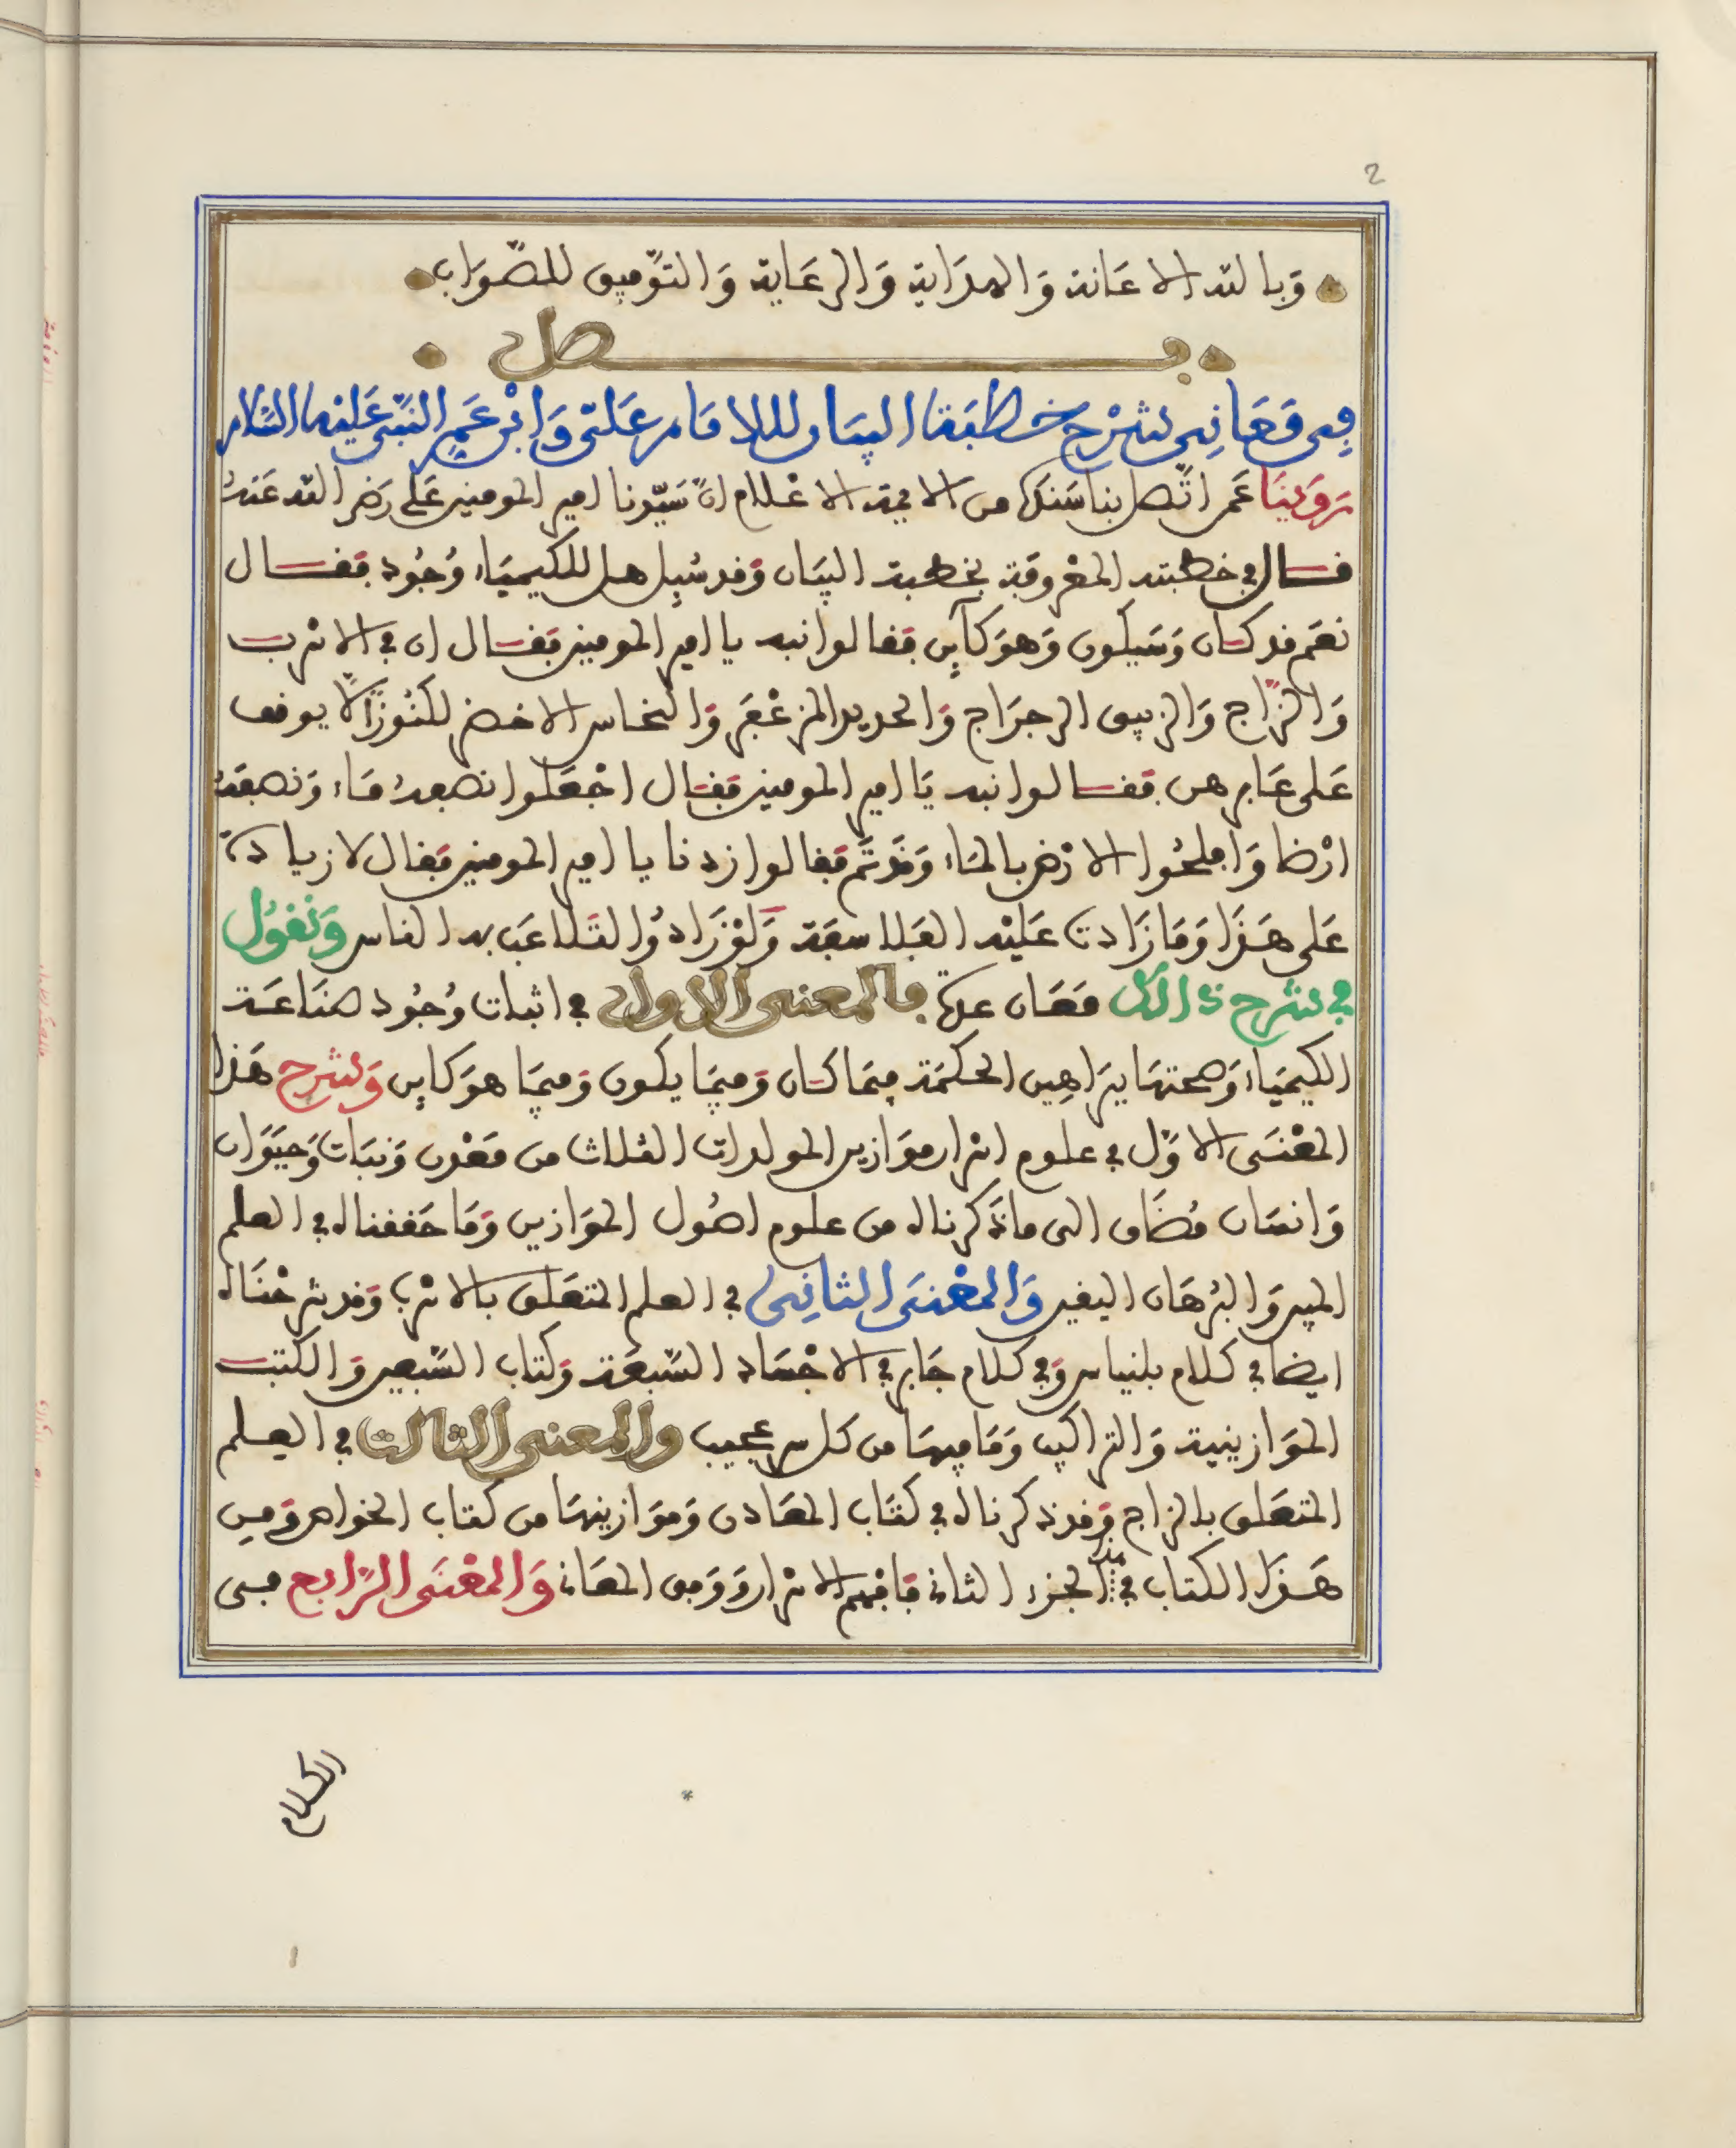 2
وَبالله الاعَانة وَالهدَاية وَالرعَاية وَالتَّوفيق للصّوَاب
فصل
فِى مَعَانِى شَرْح خطبَة البيَان للامَام عَلىّ وَابْن عَمِ النَّبِّى عَليْهمَا السَّلام
رَوَيْنَا عَمن اتّصل بنا سَندهَا من الايمة الاعْلام انّ سَيّدنا امير المومنين عَلى رَضى الله عَنهُ
قال فى خطبته المعْروفة بخطبة البيَان وَقد سُيِل هل للكيميَاء وُجُود فقال
نعَم قد كان وَسَيكون وَهوَ كآين فقالوا نبه يا امير المومنين فقال ان فى الاسْرب
وَالزّاج وَالزيبق الرجرَاج وَالحديد المزعْفَر وَالنحاس الاخضر لكنُوزًا لا يوقف
عَلى عَابرهن فقالوا نبه يَا امير المومنين فقال اجْعَلوا نصفهُ مَاء وَنصفهُ
ارْضا وَافلحُوا الارْض بالمَاء وَقدْ تَم فقالوا زدنا يا امير المومنين فقال لا زيادة
عَلى هَذَا وَمَا زَادت عَليْه الفَلاسفَة وَلوْ زَادُوا لتَلاعَب به الناس وَنقوُل
فى شرْح ذَالكَ مَعَان عدة فالمعنى الاول فى اثبات وُجُود صنَاعَة
الكيميَاء وَصحتهَا ببرَاهِين الحكمَة فيمَا كان وَفيمَا يكون وَفيمَا هوَ كاين وَشرح هَذا
المعْنَى الاوّل فى علوم اسْرار موَازين المولدات الثلاث من مَعْدن وَنبَات وَحيَوَان
وَانسَان مُضَاف الى ما ذَكرناه من علوم اصُول الموَازين وَمَا حَققناه فى العلم
المبين وَالبُرْهَان اليقين وَالمعْنَى الثانِى فى العلم المتعَلق بالاسْرب وَقد شرحْنَاه
ايضا فى كلام بلنياس وَفى كلام جَابر فى الاجْسَاد السَّبعَة وَكتاب السَّبعين وَالكتب
الموَازينية وَالترَاكيب وَمَا فيهَا من كل سر عجيب والمعنى الثالث فى العلم
المتعَلق بالزاج وَقد ذكرناه فى كتَاب المعَادن وَموَازينهَا من كتاب الخواص وَمن
هَذَا الكتاب فى الجزء الثانى فافْهم الاسْرار وَرمق المعَانى وَالمعْنَى الرَّابع فى
الكلام